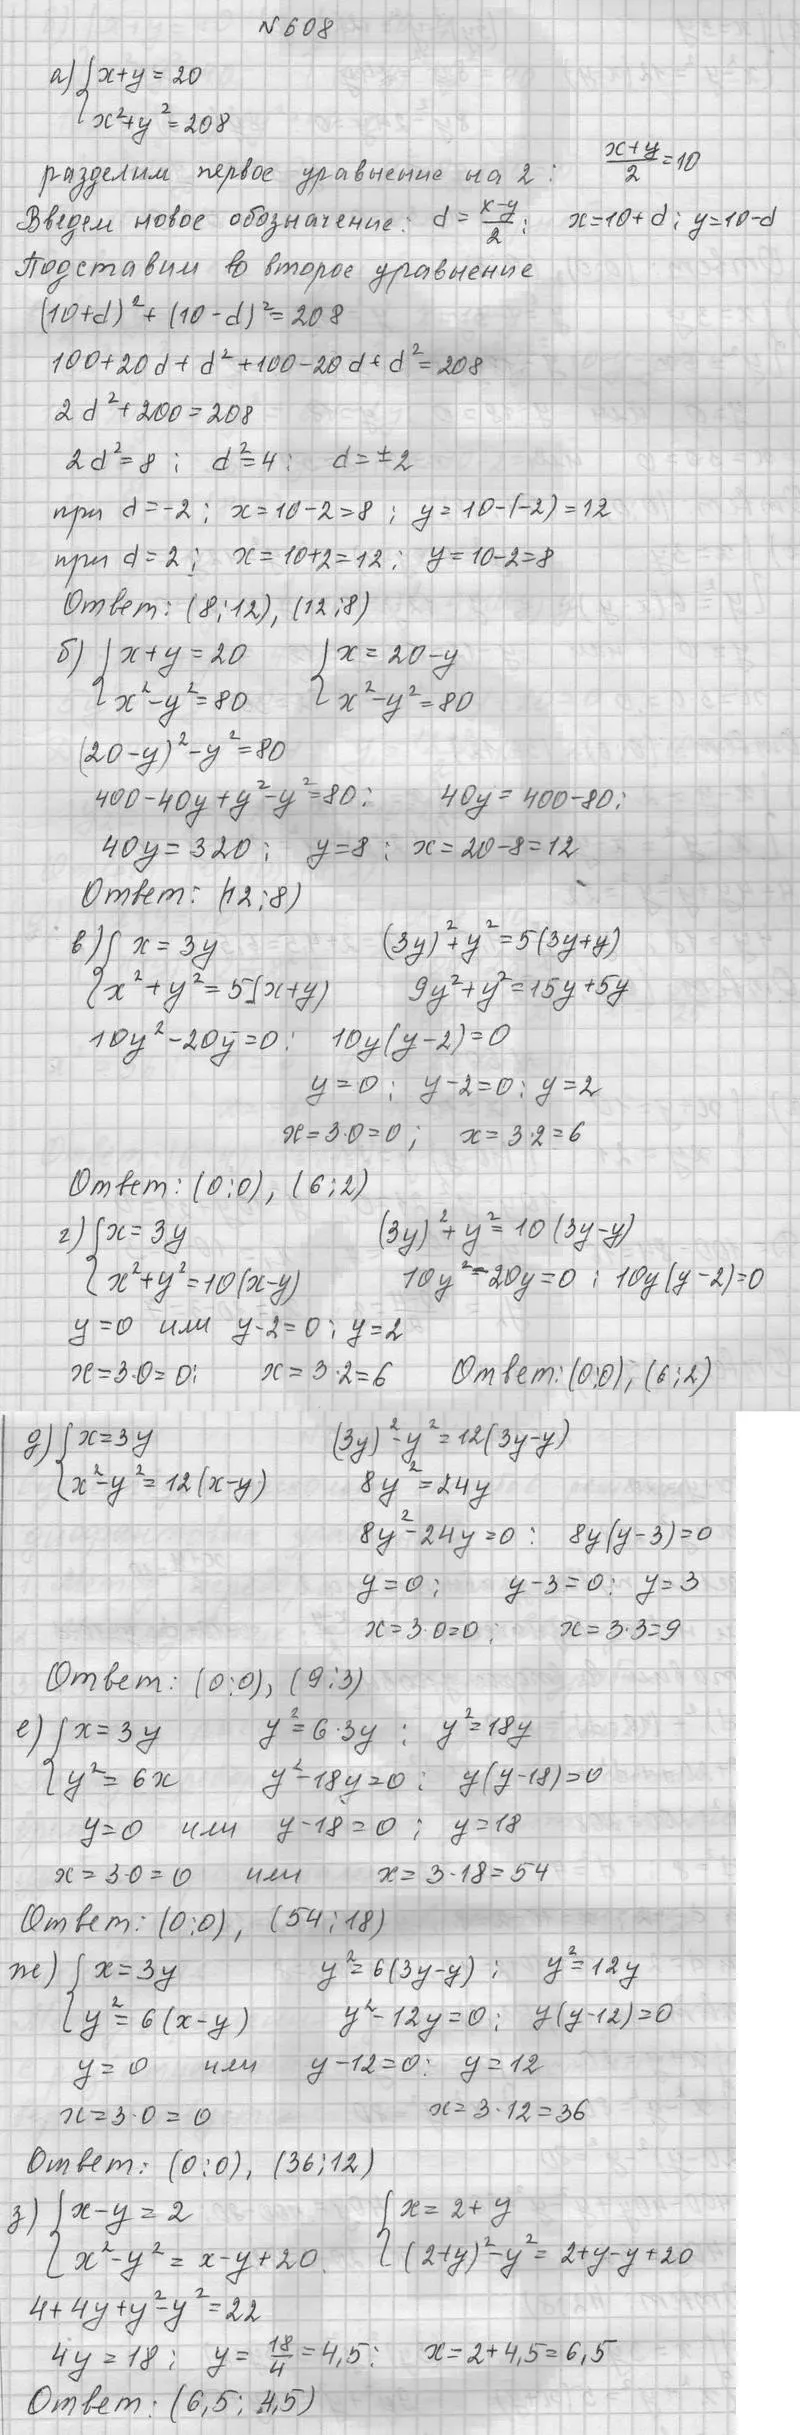 №608
а) { x+y=20
x²+y²=208
разделим первое уравнение на 2: (x+y)/2=10
Введем новое обозначение: d=(x-y)/2; x=10+d; y=10-d
Подставим во второе уравнение
(10+d)²+(10-d)²=208
100+20d+d²+100-20d+d²=208
2d²+200=208
2d²=8; d²=4; d=±2
при d=-2; x=10-2=8; y=10-(-2)=12
при d=2; x=10+2=12; y=10-2=8
Ответ: (8;12), (12;8)
б) { x+y=20 { x=20-y
x²-y²=80 x²-y²=80
(20-y)²-y²=80
400-40y+y²-y²=80; 40y=400-80;
40y=320; y=8; x=20-8=12
Ответ: (12;8)
в) { x=3y (3y)²+y²=5(3y+y)
x²+y²=5(x+y) 9y²+y²=15y+5y
10y²-20y=0; 10y(y-2)=0
y=0; y-2=0; y=2
x=3·0=0; x=3·2=6
Ответ: (0;0), (6;2)
г) { x=3y (3y)²+y²=10(3y-y)
x²+y²=10(x-y) 10y²-20y=0; 10y(y-2)=0
y=0 или y-2=0; y=2
x=3·0=0; x=3·2=6 Ответ: (0;0), (6;2)
д) { x=3y (3y)²-y²=12(3y-y)
x²-y²=12(x-y) 8y²=24y
8y²-24y=0; 8y(y-3)=0
y=0; y-3=0; y=3
x=3·0=0; x=3·3=9
Ответ: (0;0), (9;3)
е) { x=3y y²=6·3y; y²=18y
y²=6x y²-18y=0; y(y-18)=0
y=0 или y-18=0; y=18
x=3·0=0 или x=3·18=54
Ответ: (0;0), (54;18)
ж) { x=3y y²=6(3y-y); y²=12y
y²=6(x-y) y²-12y=0; y(y-12)=0
y=0 или y-12=0; y=12
x=3·0=0 x=3·12=36
Ответ: (0;0), (36;12)
з) { x-y=2 { x=2+y
x²-y²=x-y+20 (2+y)²-y²=2+y-y+20
4+4y+y²-y²=22
4y=18; y=18/4=4,5; x=2+4,5=6,5
Ответ: (6,5; 4,5)